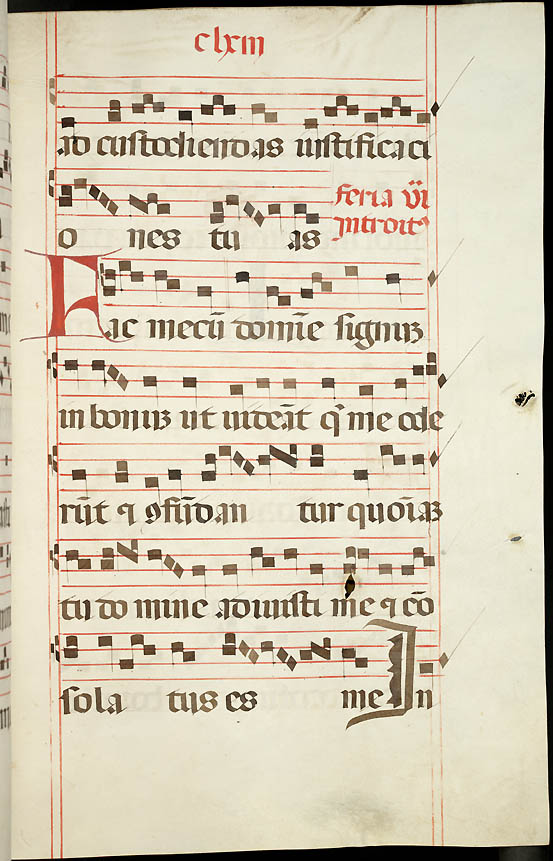 clxiii
ad custodiendas iustificaci
ones tuas
feria vi
introit⁹
Fac mecū domine signuz
in bonuz ut uideāt qͥ me ode
rūt ⁊ ꝯfūdantur quoniaz
tu domine adiuuisti me ⁊ cō
solatus es me In